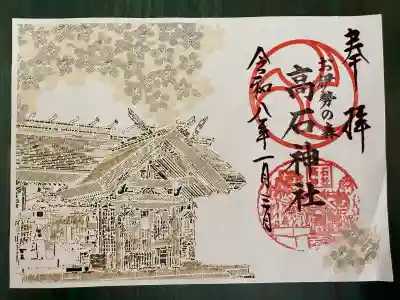 奉拝
お伊勢の森
高石神社
令和八年一月三日